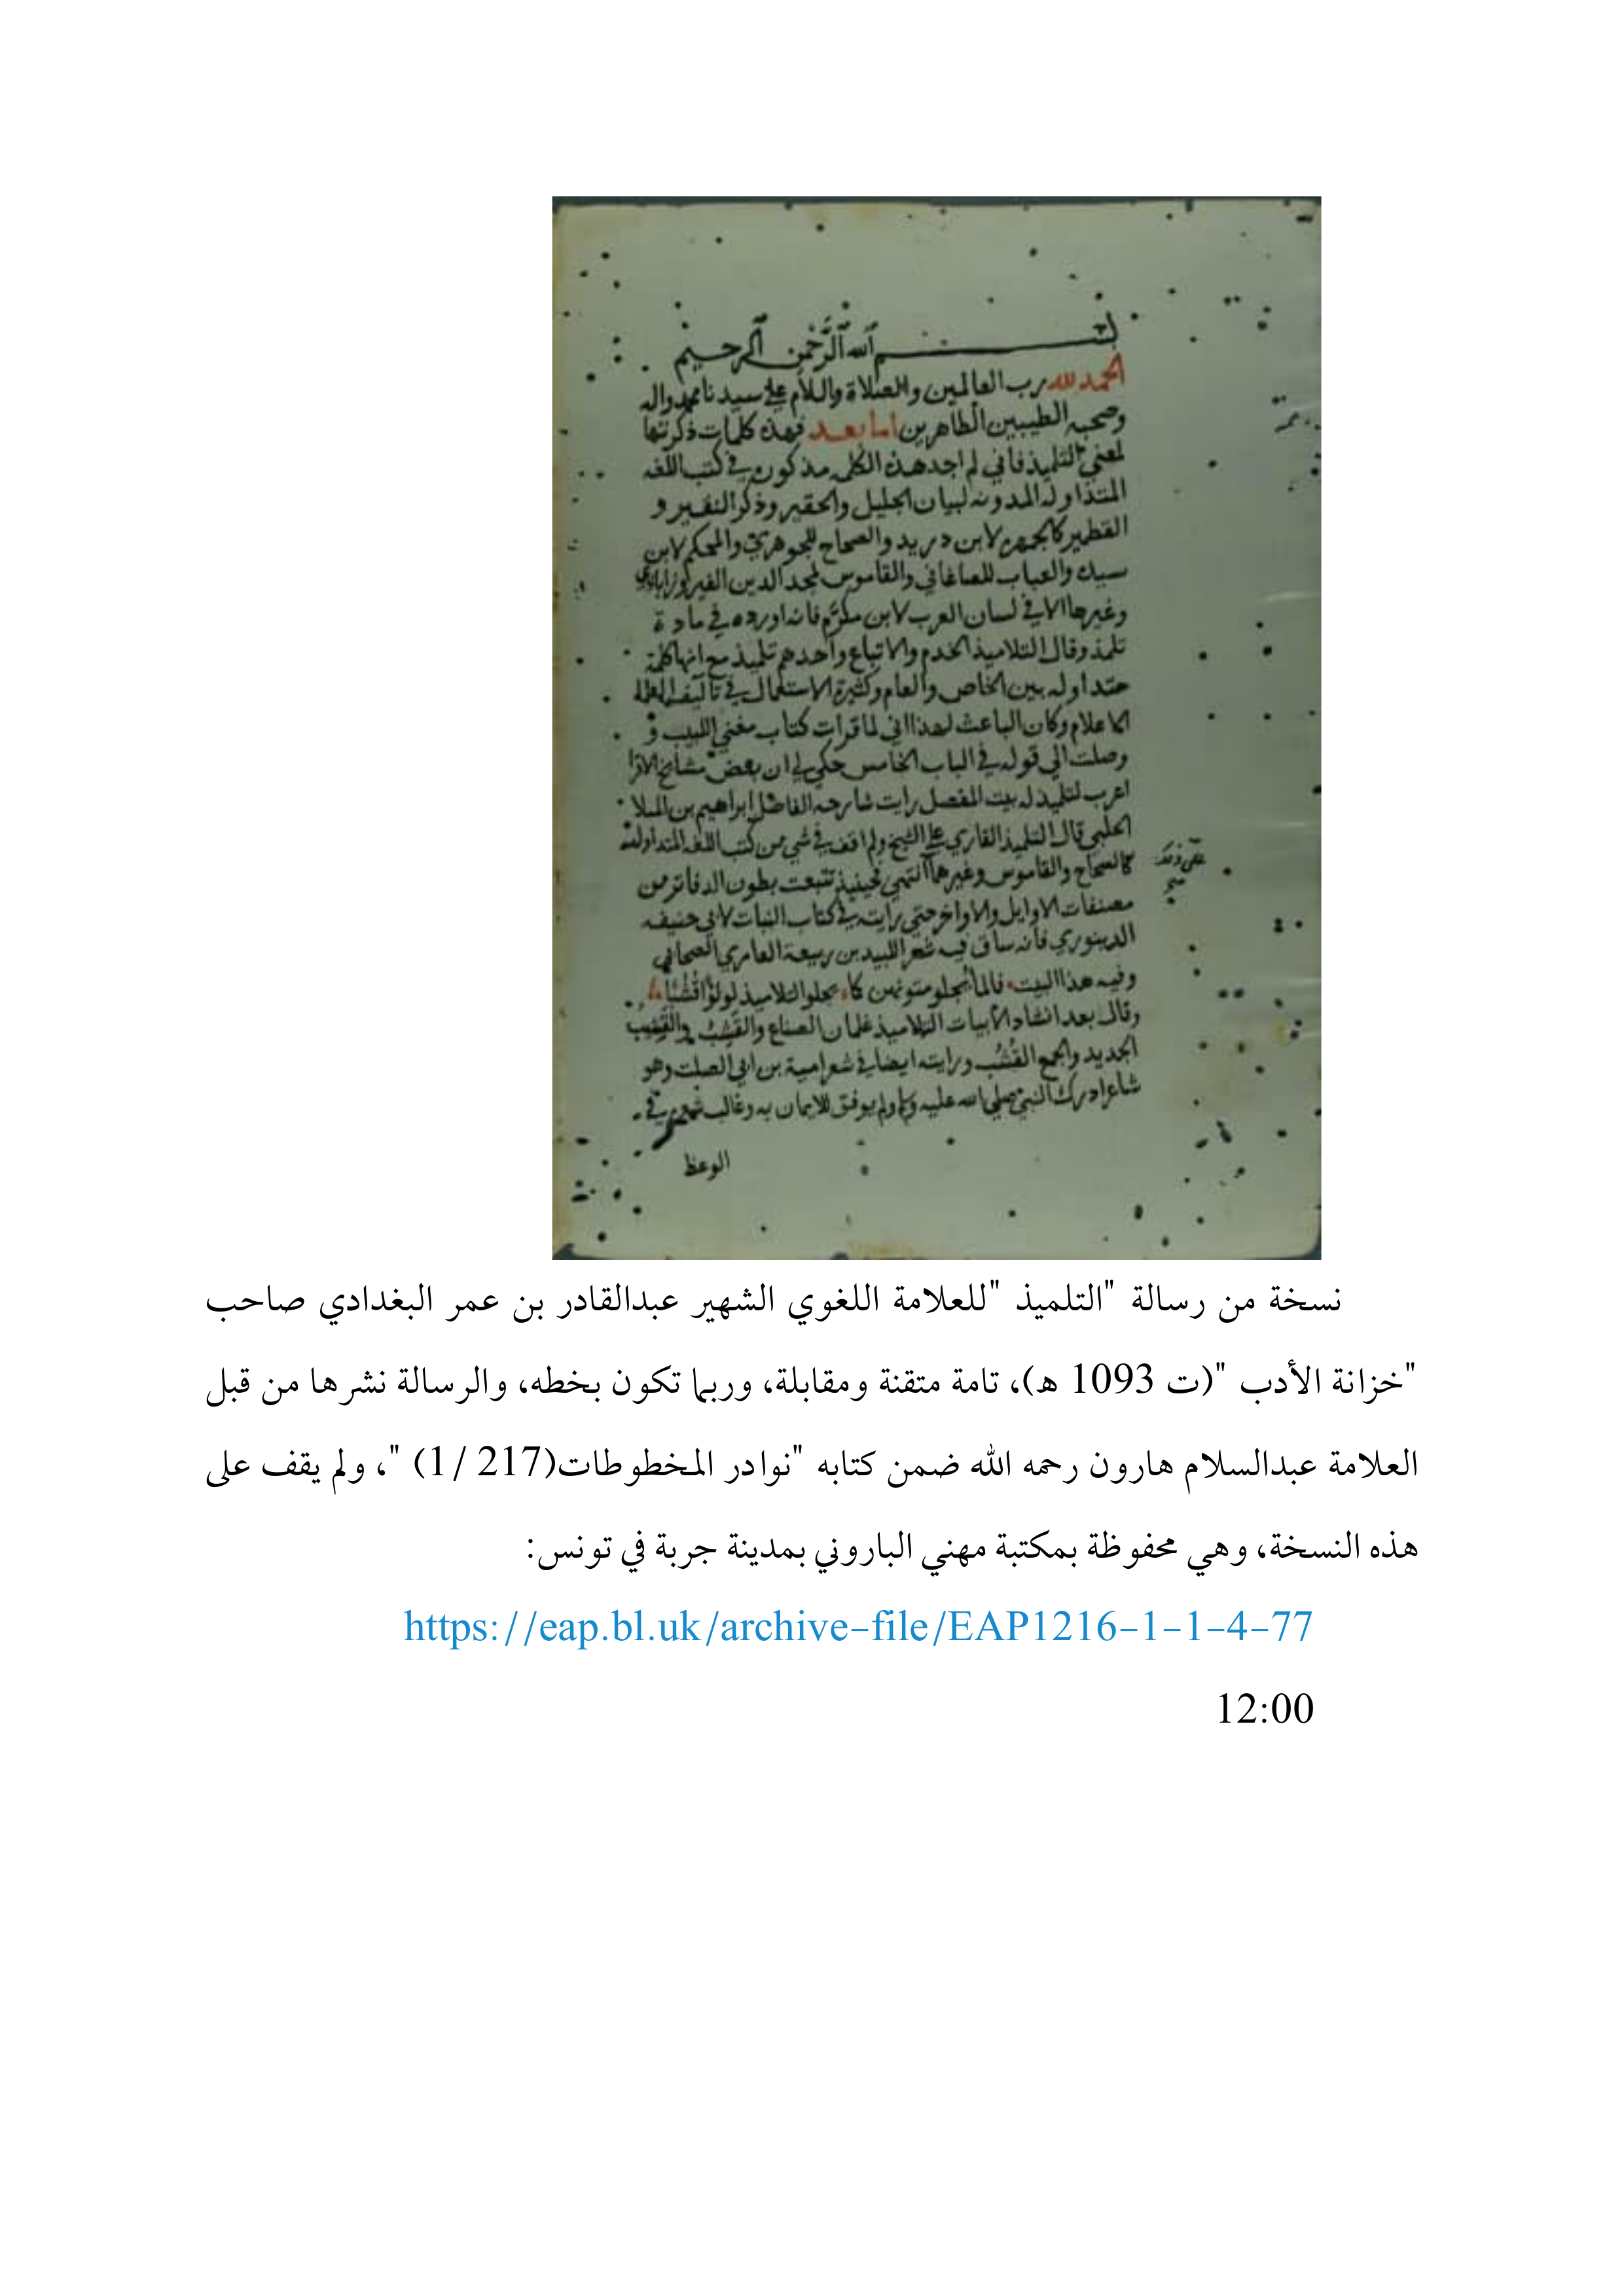 بسم الله الرحمن الرحيم
الحمد لله رب العالمين والصلاة والسلام على سيدنا محمد واله
وصحبه الطيبين الطاهرين اما بعد فهذه كلمات ذكرتها
لمعني التلميذ فاني لم اجد هذه الكلمه مذكوره في كتب اللغه
المتداوله المدونه لبيان الجليل والحقير وذكر النقير و
القطمير كالجمهره لابن دريد والصحاح للجوهري والمحكم لابن
سيده والعباب للصاغاني والقاموس لمجد الدين الفيروزابادي
وغيرها الا في لسان العرب لابن مكرّم فانه اورده في مادة
تلمذ وقال التلاميذ الخدم والاتباع واحدهم تلميذ مع انها كلمة
متداوله بين الخاص والعام وكثيرة الاستعمال في تآليف العلما
الاعلام وكان الباعث لهذا اني لما قرات كتاب مغني اللبيب و
وصلت الي قوله في الباب الخامس حكي لي ان بعض مشايخ الاقرا
اعرب لتلميذ له بيت المفصل رايت شارحه الفاضل ابراهيم بن الملا
الحلبي قال التلميذ القاري علي الشيخ ولم اقف في شي من كتب اللغه المتداولة
كالصحاح والقاموس وغيرهما انتهي فحينيذ تتبعت بطون الدفاتر من
مصنفات الاوايل والاواخر حتي رايته في كتاب النبات لابي حنيفه
الدينوري فانه ساق فيه شعرا للبيد بن ربيعة العامري الصحابي
وفيه هذا البيت فالما يجلو متونهن كما يجلو التلاميذ لولؤا قشبا
وقال بعد انشاد الابيات التلاميذ غلمان الصناع والقشب والقشيب
الجديد والجمع القُشُب ورايته ايضا في شعر امية بن ابي الصلت وهو
شاعر ادرك النبي صلي الله عليه ولم يوفق للايمان به وغالب شعره في
الوعظ
نسخة من رسالة "التلميذ "للعلامة اللغوي الشهير عبدالقادر بن عمر البغدادي صاحب
"خزانة الأدب "(ت 1093 هـ)، تامة متقنة ومقابلة، وربما تكون بخطه، والرسالة نشرها من قبل
العلامة عبدالسلام هارون رحمه الله ضمن كتابه "نوادر المخطوطات(217 /1) "، ولم يقف على
هذه النسخة، وهي محفوظة بمكتبة مهني الباروني بمدينة جربة في تونس:
https://eap.bl.uk/archive-file/EAP1216-1-1-4-77
12:00